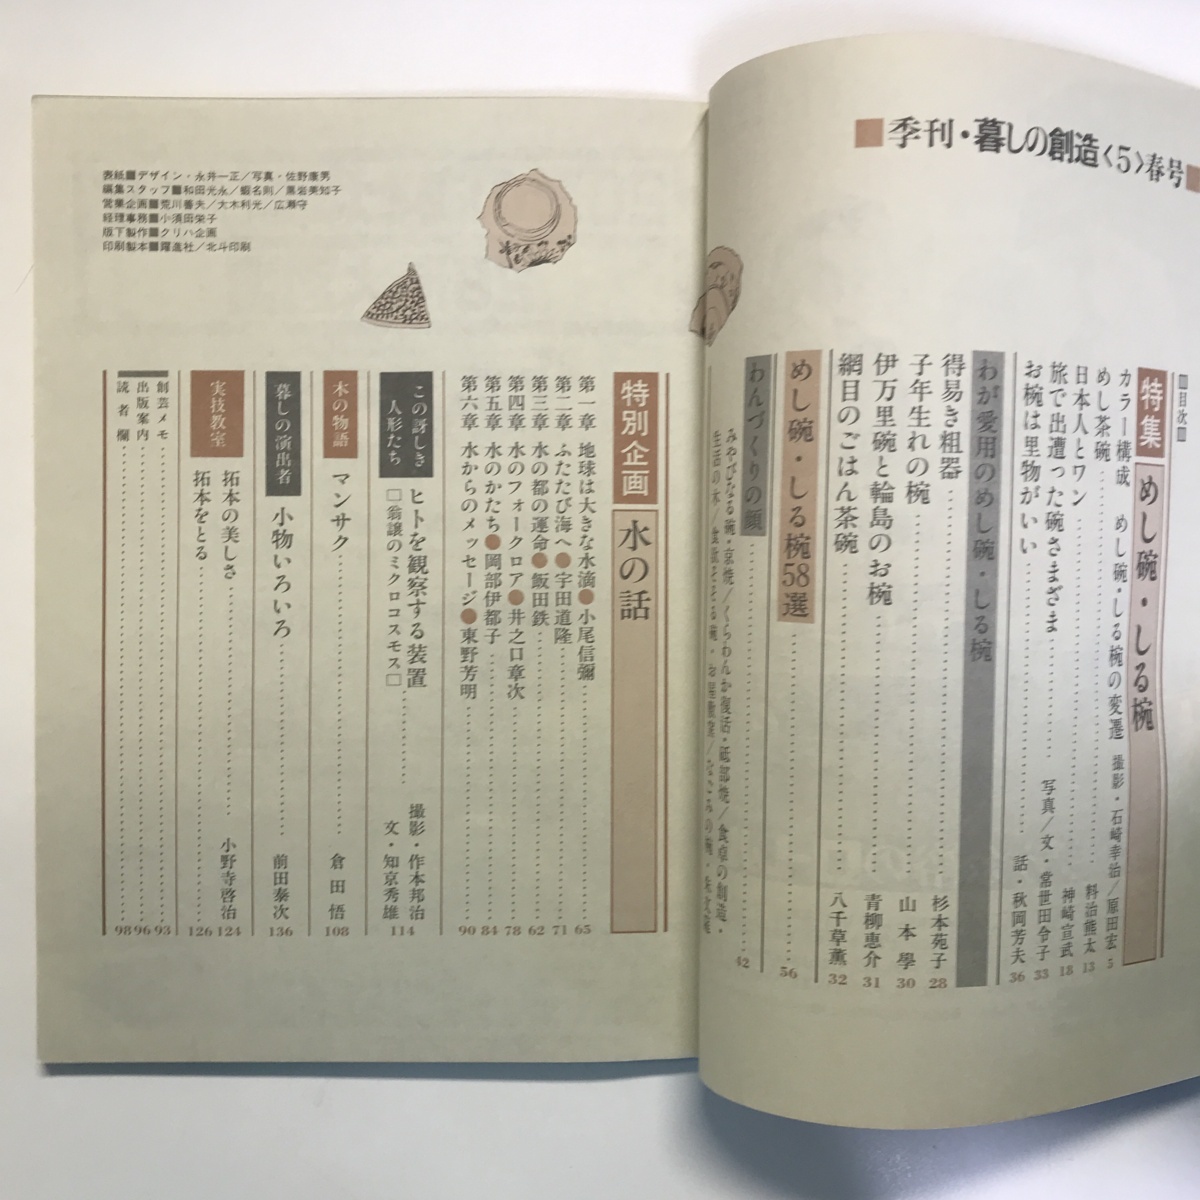 ■季刊・暮しの創造〈5〉春号■
目次
特集 めし碗・しる椀
カラー構成 めし碗・しる椀の変遷 撮影・石崎幸治／原田宏 5
めし茶碗 料治熊太 13
日本人とワン 神崎宣武 18
旅で出遭った碗さまざま 写真／文・常世田令子 33
お椀は里物がいい 話・秋岡芳夫 36
わが愛用のめし碗・しる椀
得易き粗器 杉本苑子 28
子年生れの椀 山本學 30
伊万里碗と輪島のお椀 青柳恵介 31
網目のごはん茶碗 八千草薫 32
めし碗・しる椀58選 56
わんづくりの顔 42
みやびなる碗・京焼／くらわんか復活・砥部焼／食卓の創造・
生活の木／食欲そそる椀・
表紙■デザイン・永井一正／写真・佐野康男
編集スタッフ■和田光永／蝦名則／黒岩美知子
営業企画■荒川善夫／大木利光／広瀬守
経理事務■小須田栄子
版下製作■クリハ企画
印刷製本■躍進社／北斗印刷
特別企画 水の話
第一章 地球は大きな水滴●小尾信彌 65
第二章 ふたたび海へ●宇田道隆 71
第三章 水の都の運命●飯田鉄 62
第四章 水のフォークロア●井之口章次 78
第五章 水のかたち●岡部伊都子 84
第六章 水からのメッセージ●東野芳明 90
この訝しき人形たち
ヒトを観察する装置 撮影・作本邦治
□翁譲のミクロコスモス□ 文・知京秀雄 114
木の物語 マンサク 倉田悟 108
暮しの演出者 小物いろいろ 前田泰次 136
実技教室 拓本の美しさ 小野寺啓治 124
拓本をとる 126
創芸メモ 93
出版案内 96
読者欄 98